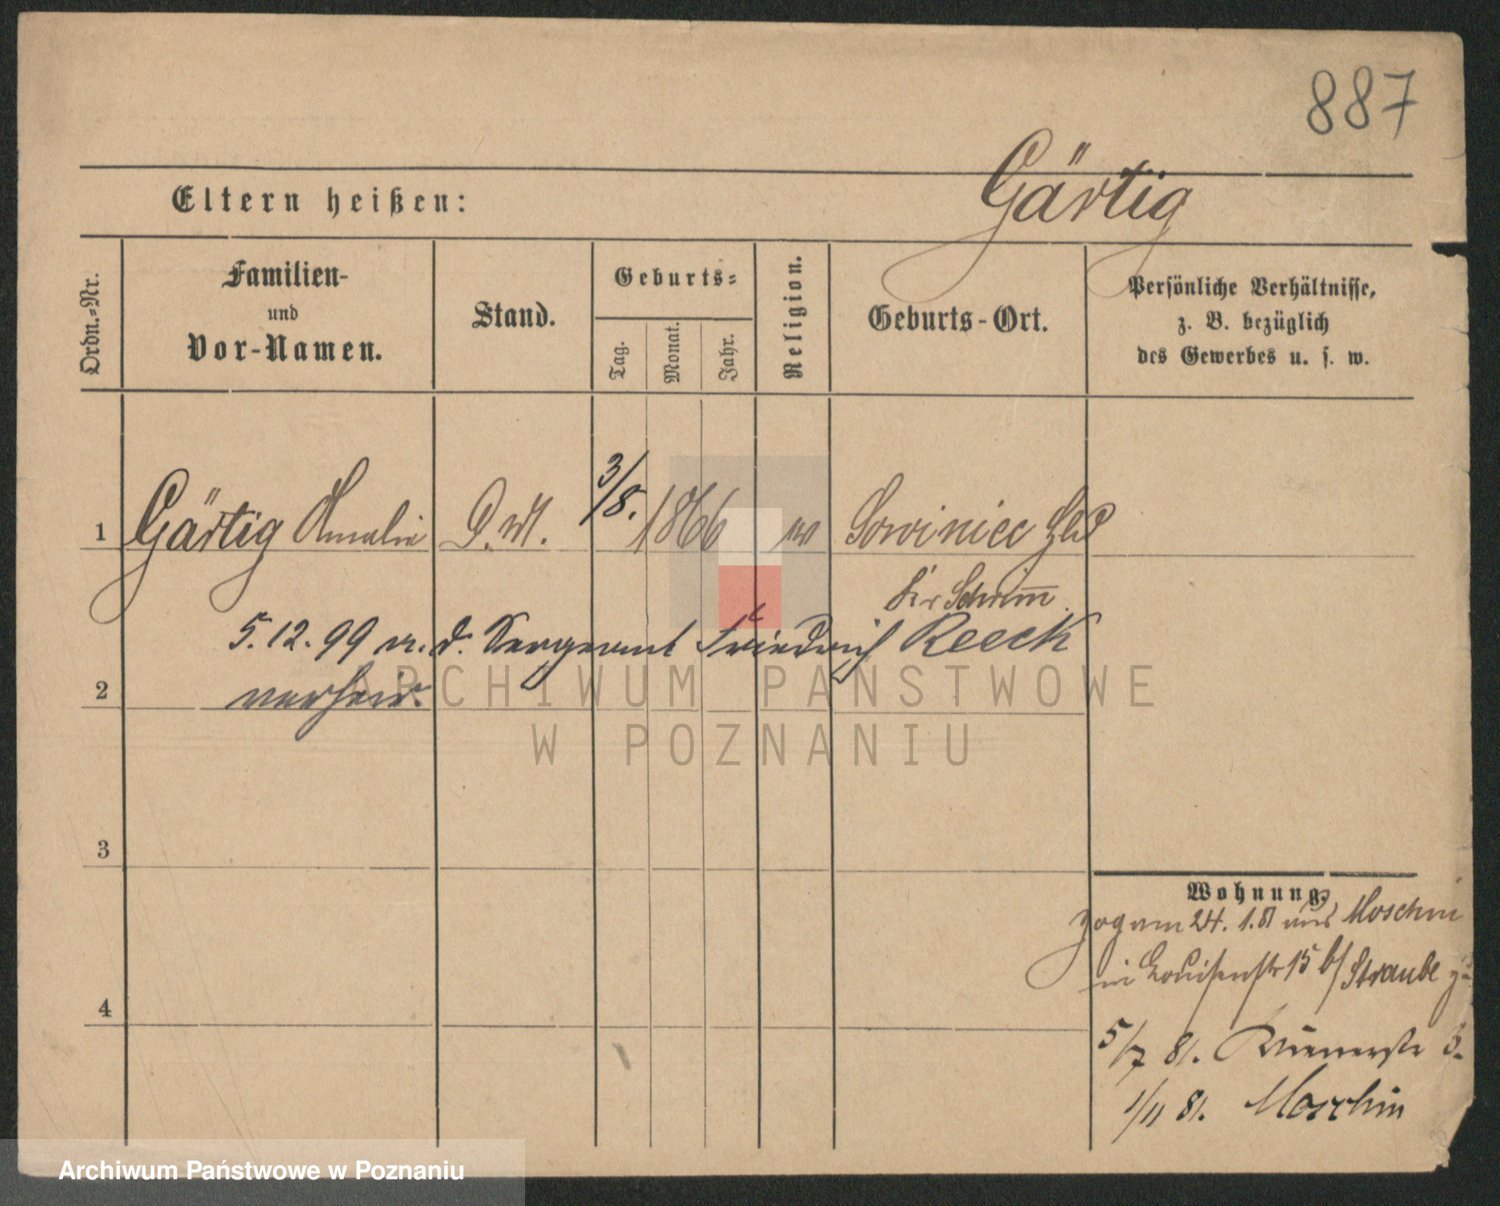 887
Gärtig
Eltern heißen:
Ordn.-Nr.
Familien-
und
Vor-Namen.
Stand.
Geburts-
Tag.
Monat.
Jahr.
Religion.
Geburts-Ort.
Persönliche Verhältnisse,
z. B. bezüglich
des Gewerbes u. s. w.
1 Gärtig Amalie D. M. 3/8. 1866 Sowiniec
Kr Schrimm
5.12.99 m. d. Sergeant Friedrich Reeck
2 verheir.
3
4
Wohnung.
zog am 24. 1.81 aus Moschin
in Louisenstr 15 b/ Straube zu
5/7 81. 3.
1/11 81. Moschin
ARCHIWUM PAŃSTWOWE
W POZNANIU
Archiwum Państwowe w Poznaniu